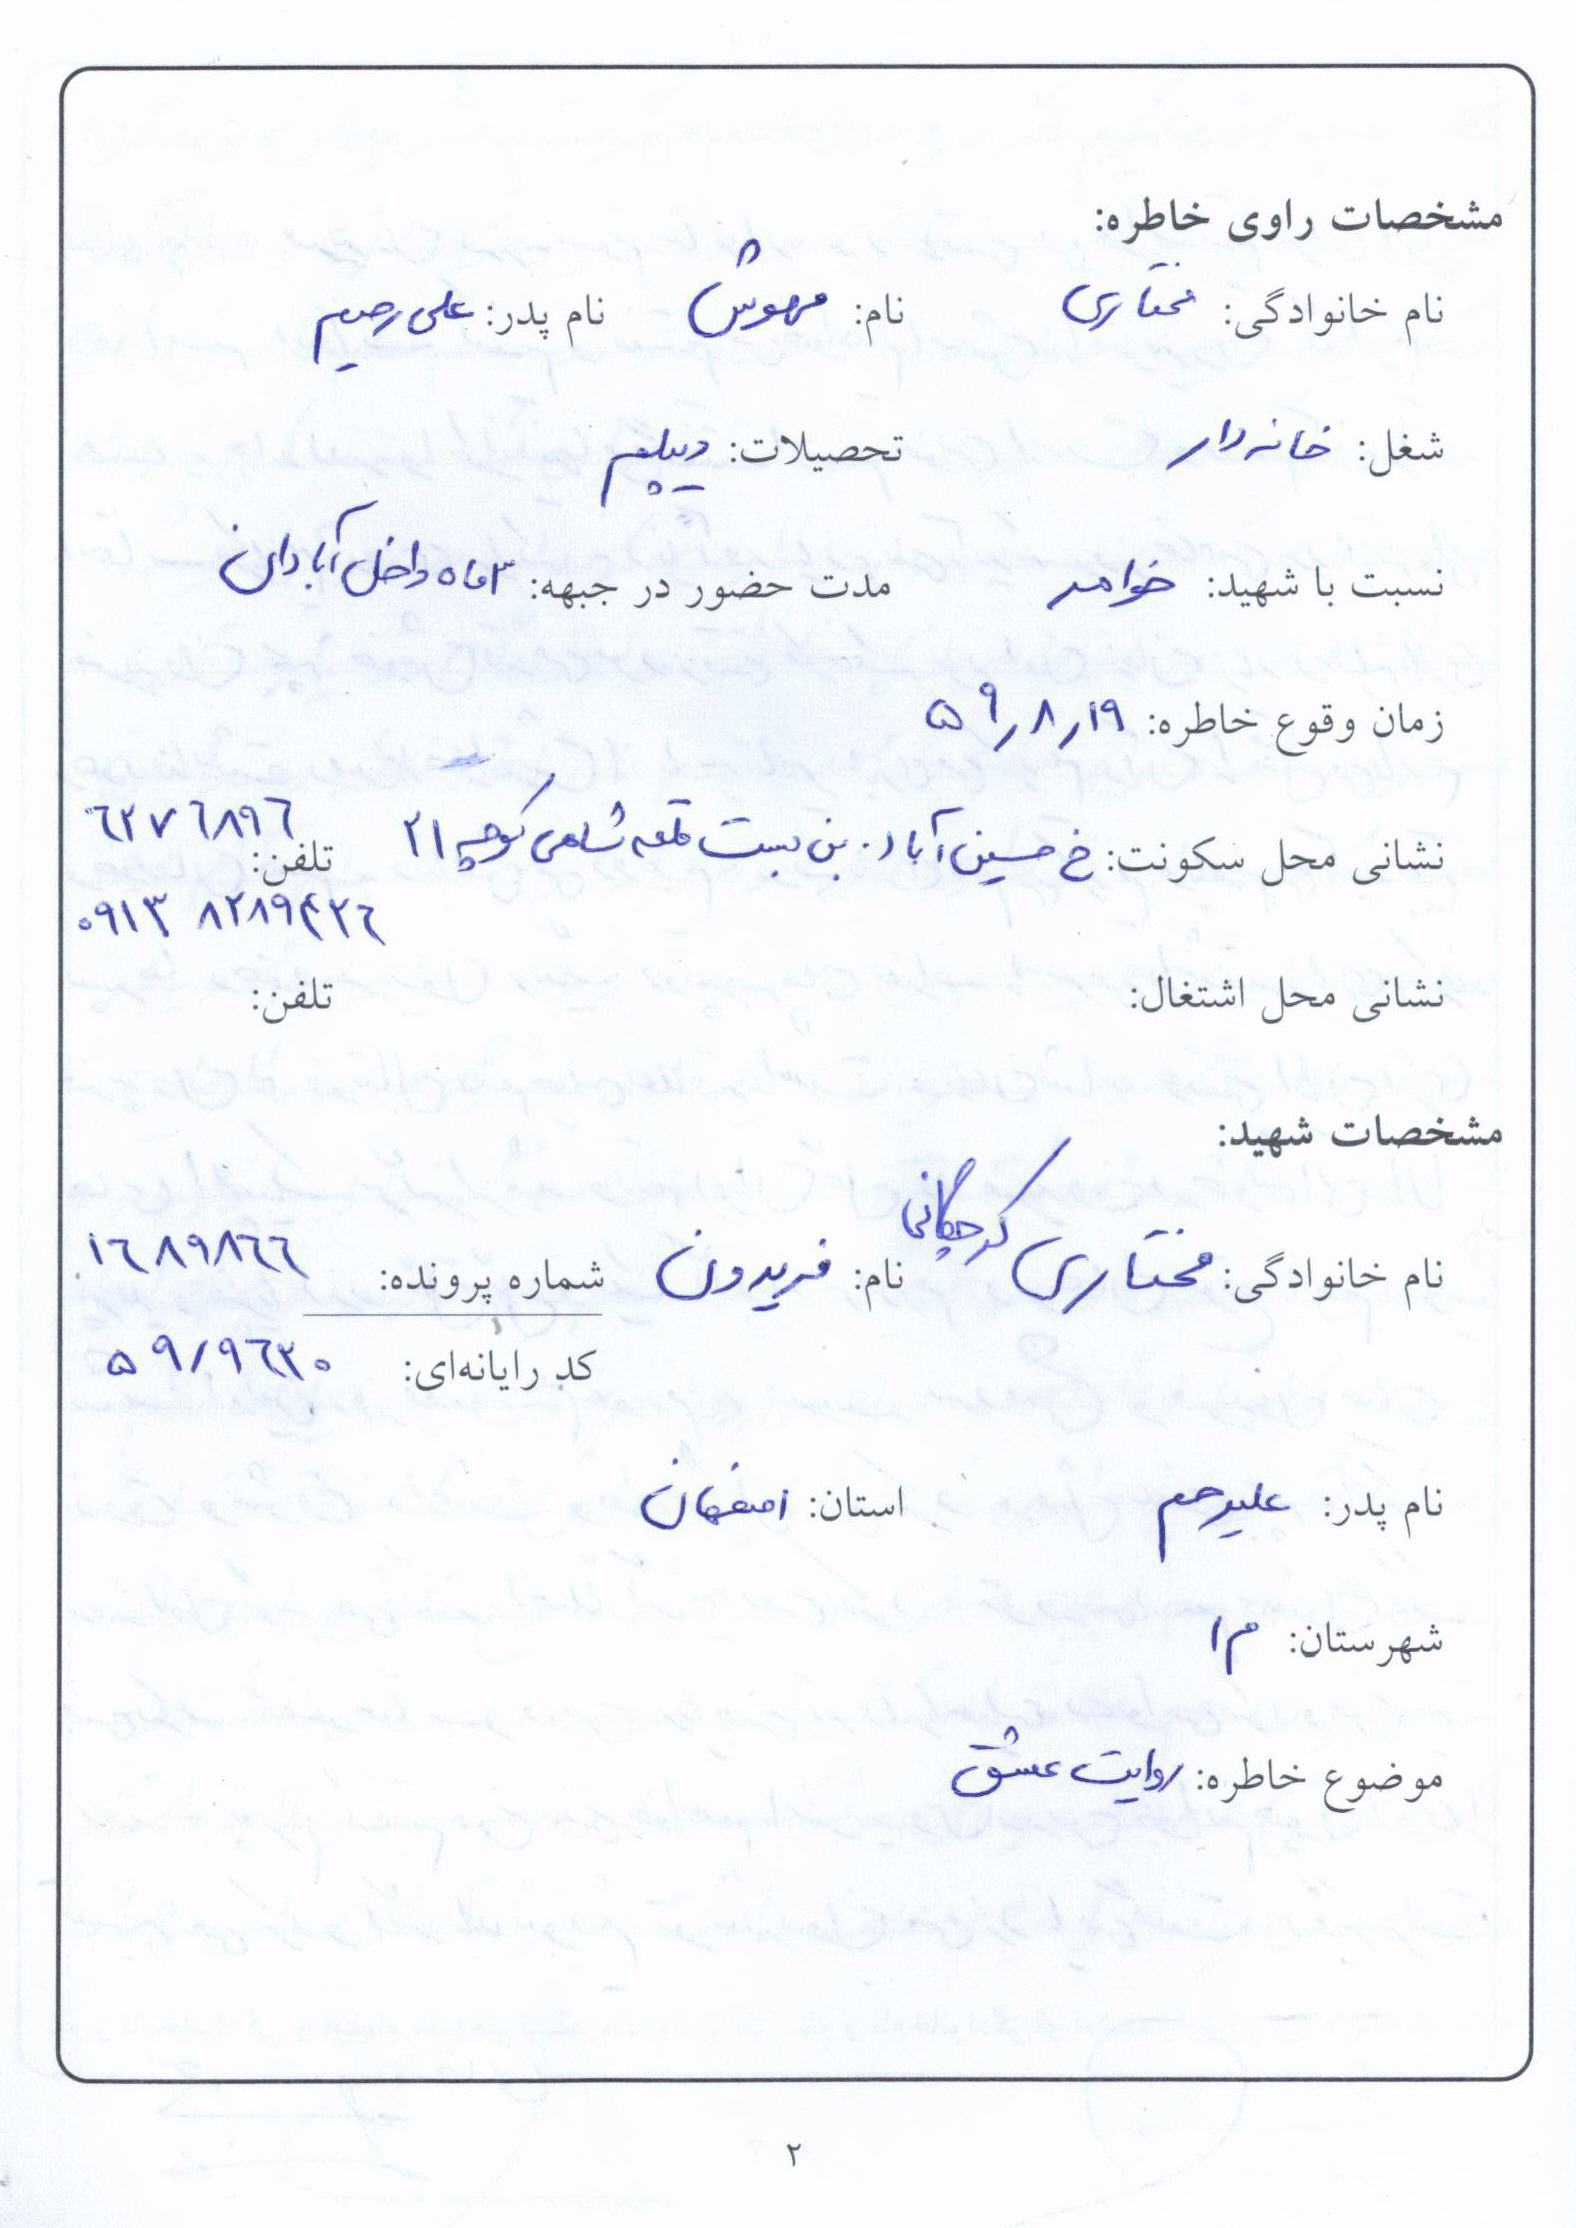 مشخصات راوی خاطره:
نام خانوادگی: مختاری نام: مهوش نام پدر: علی رحیم
شغل: خانه دار تحصیلات: دیپلم
نسبت با شهید: خواهر مدت حضور در جبهه: ۳ ماه داخل آبادان
زمان وقوع خاطره: ۵۹٫۸٫۱۹
نشانی محل سکونت: خ حسین آباد. بن بست قلعه شاهی کوچه ۲۱ تلفن: ٦٢٧٦٨٩٦
۰۹۱۳ ۸۲۸۹۴۲٦
نشانی محل اشتغال: تلفن:
مشخصات شهید:
نام خانوادگی: مختاری نام: فریدون شماره پرونده: ۱٦۸۹۸٦٦
کد رایانه‌ای: ۵۹/۹٦۲۰
نام پدر: علیرحم استان: اصفهان
شهرستان: م ۱
موضوع خاطره: روایت عشق
۲